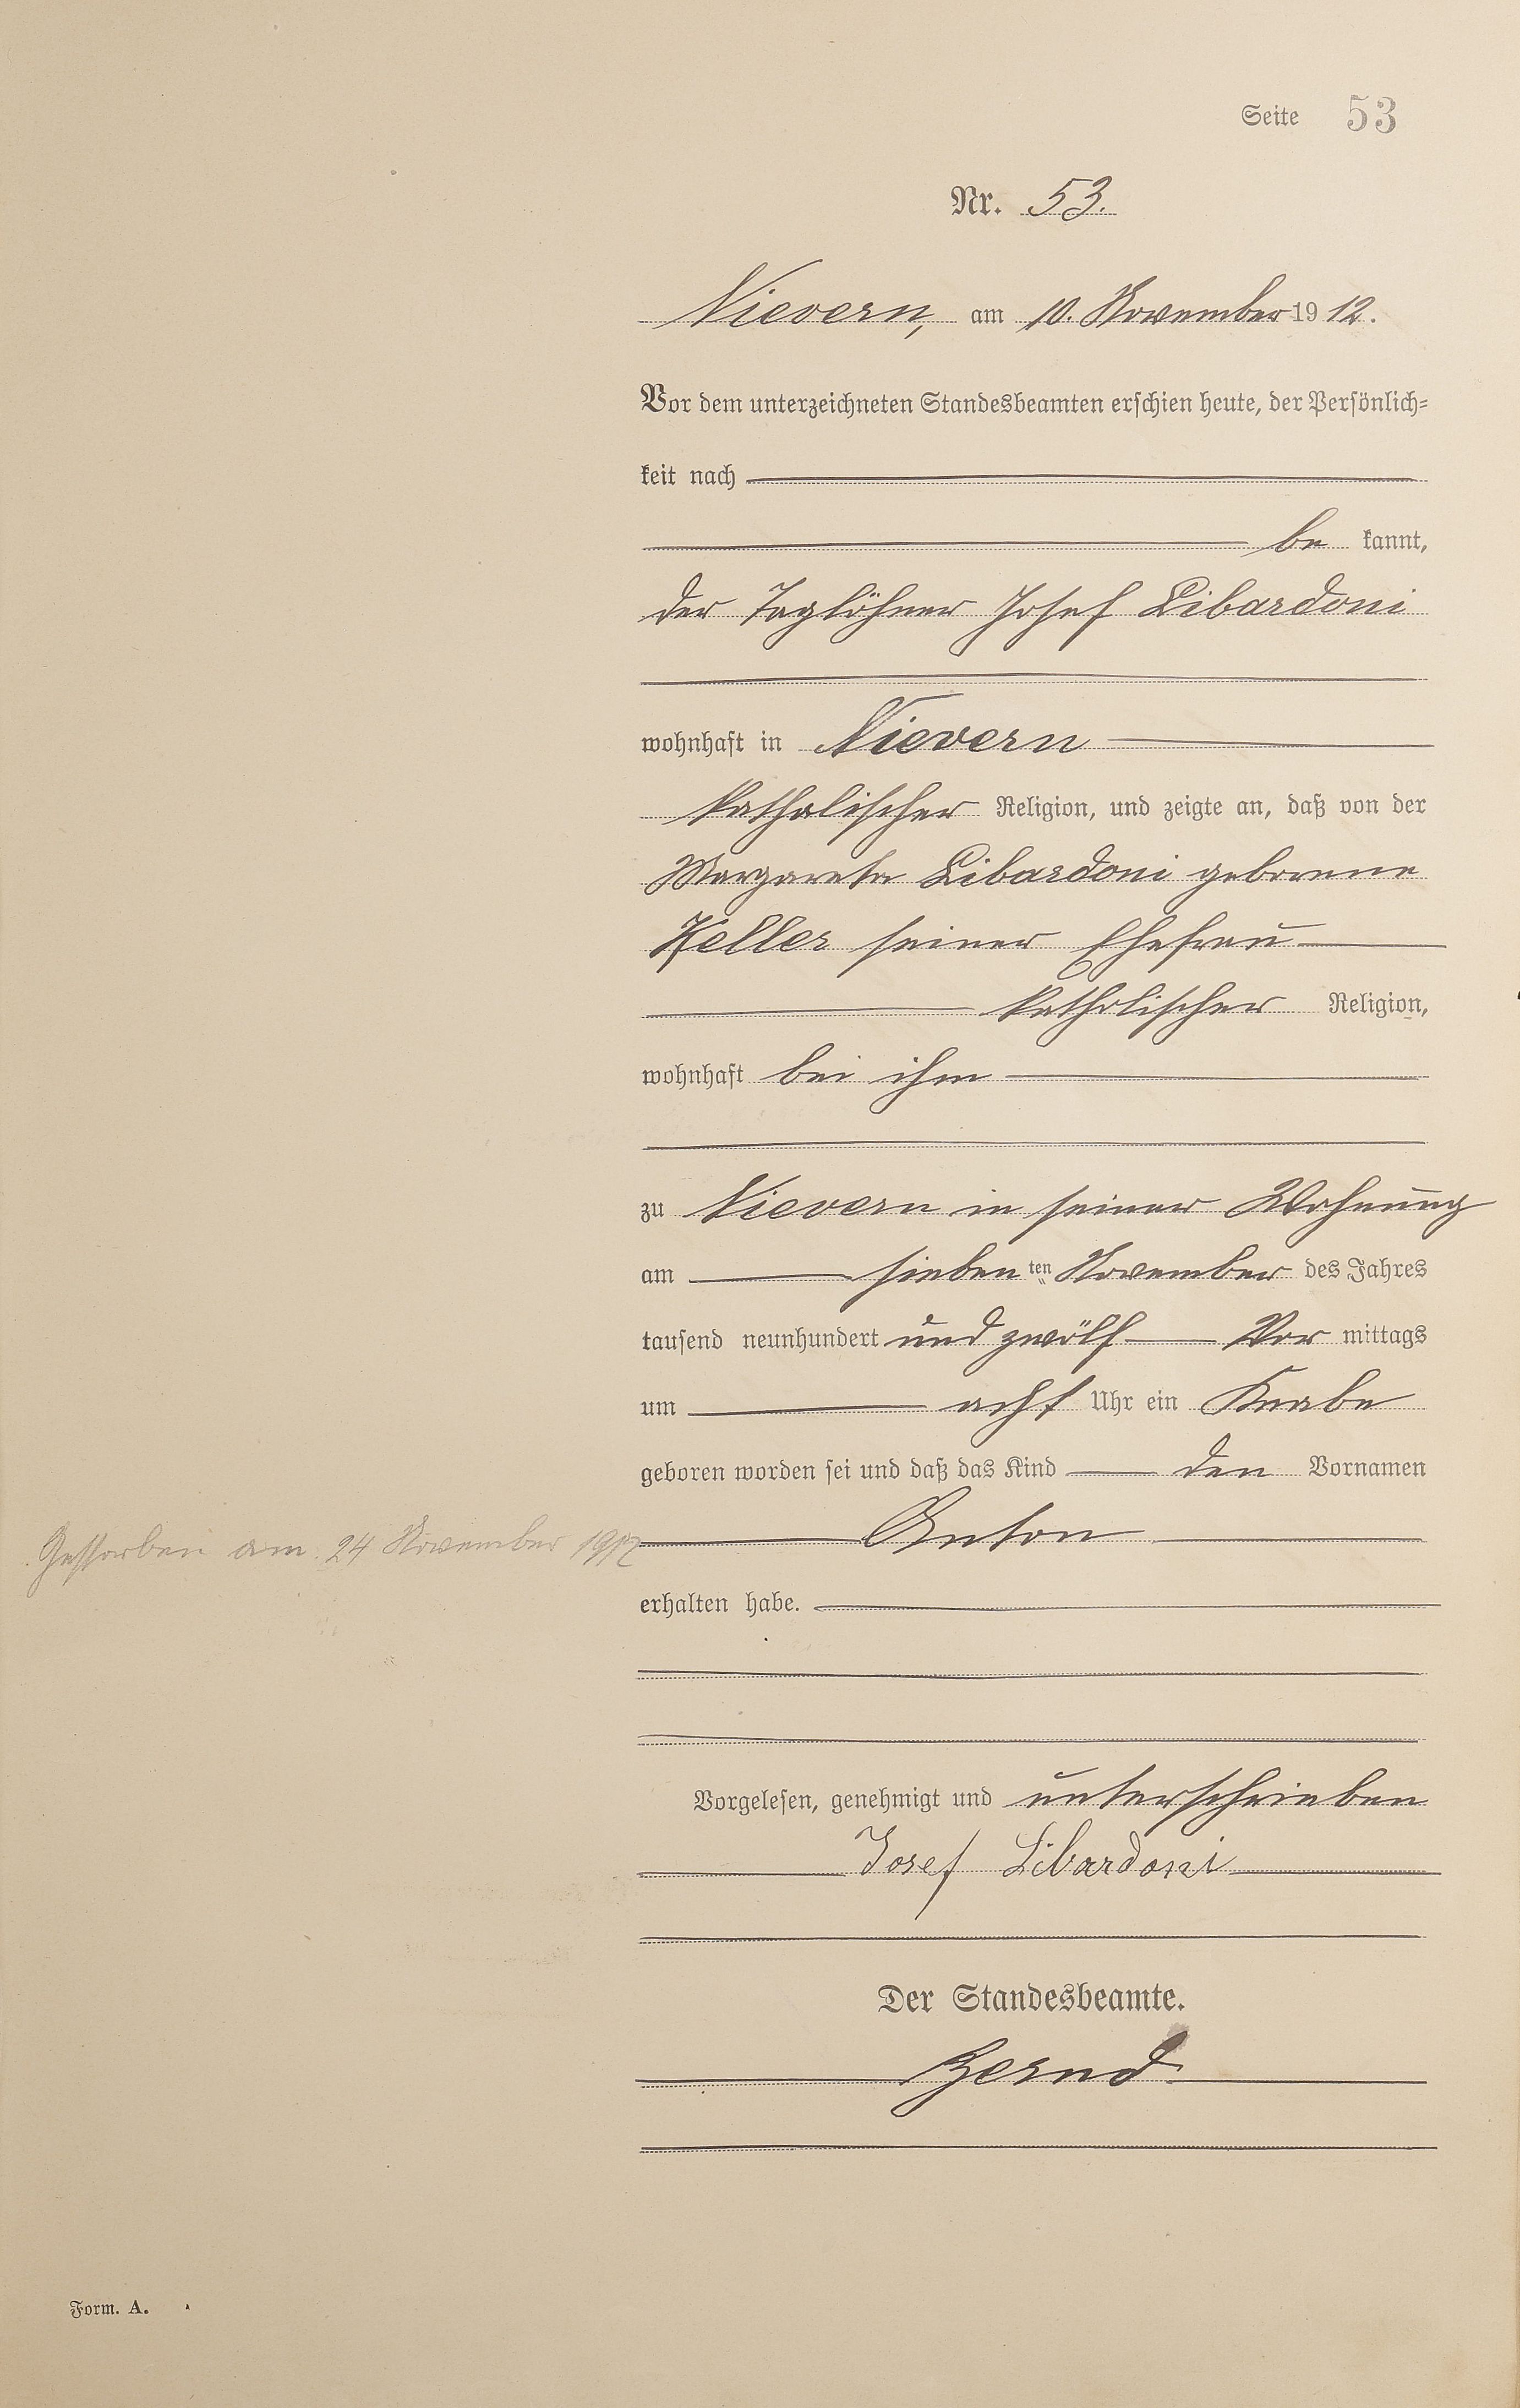 Seite 53
Nr. 53.
Nievern, am 10. November 1912.
Vor dem unterzeichneten Standesbeamten erschien heute, der Persönlich-
keit nach
be kannt,
der Taglöhner Josef Libardoni
wohnhaft in Nievern
katholischer Religion, und zeigte an, daß von der
Margareta Libardoni geborene
Keller seiner Ehefrau
katholischer Religion,
wohnhaft bei ihm
zu Nievern in seiner Wohnung
am siebenten November des Jahres
tausend neunhundert und zwölf Vor mittags
um acht Uhr ein Knabe
geboren worden sei und daß das Kind den Vornamen
Anton
Gestorben am 24 November 1912
erhalten habe.
Vorgelesen, genehmigt und unterschrieben
Josef Libardoni
Der Standesbeamte.
Form. A.